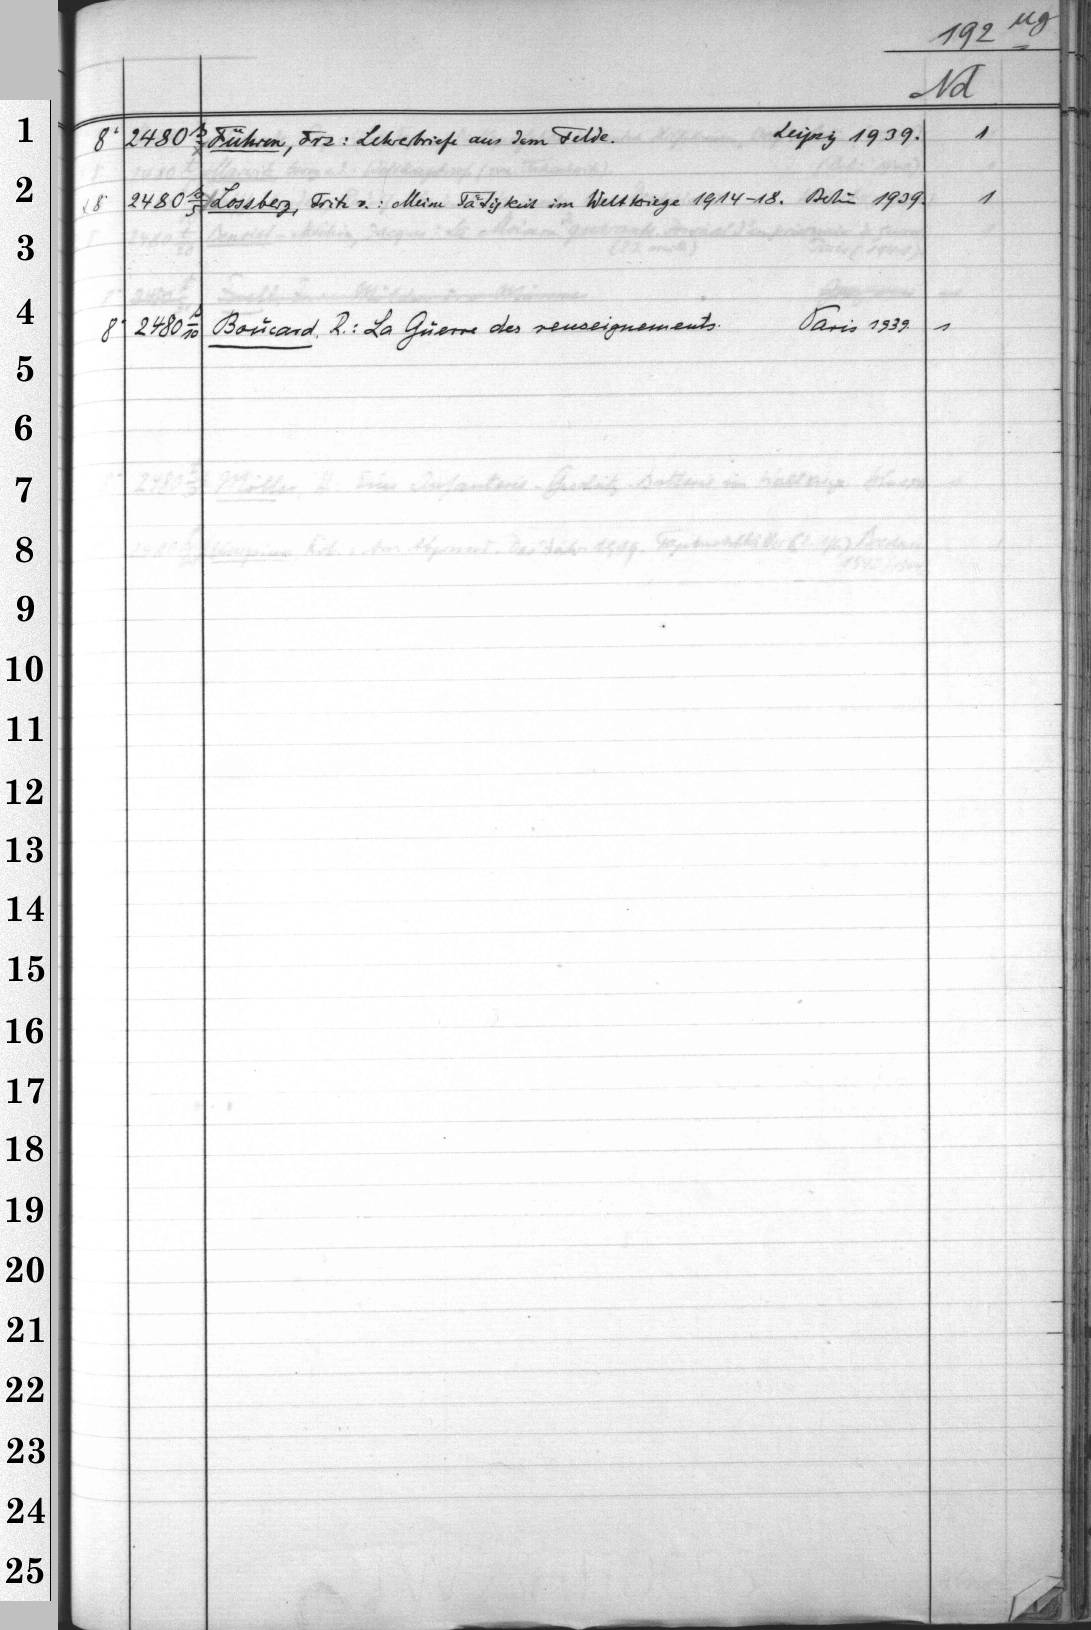 192 ug
Nd
1
8° 2480 b/3 Führen, Frz: Lehrerbriefe aus dem Felde. Leipzig 1939. 1
2
8° 2480 b/5 Lossberg, Fritz v.: Meine Tätigkeit im Weltkriege 1914-18. Berlin 1939. 1
3
4
8° 2480 b/10 Boucard, R.: La Guerre des renseignements. Paris 1939 1
5
6
7
8
9
10
11
12
13
14
15
16
17
18
19
20
21
22
23
24
25